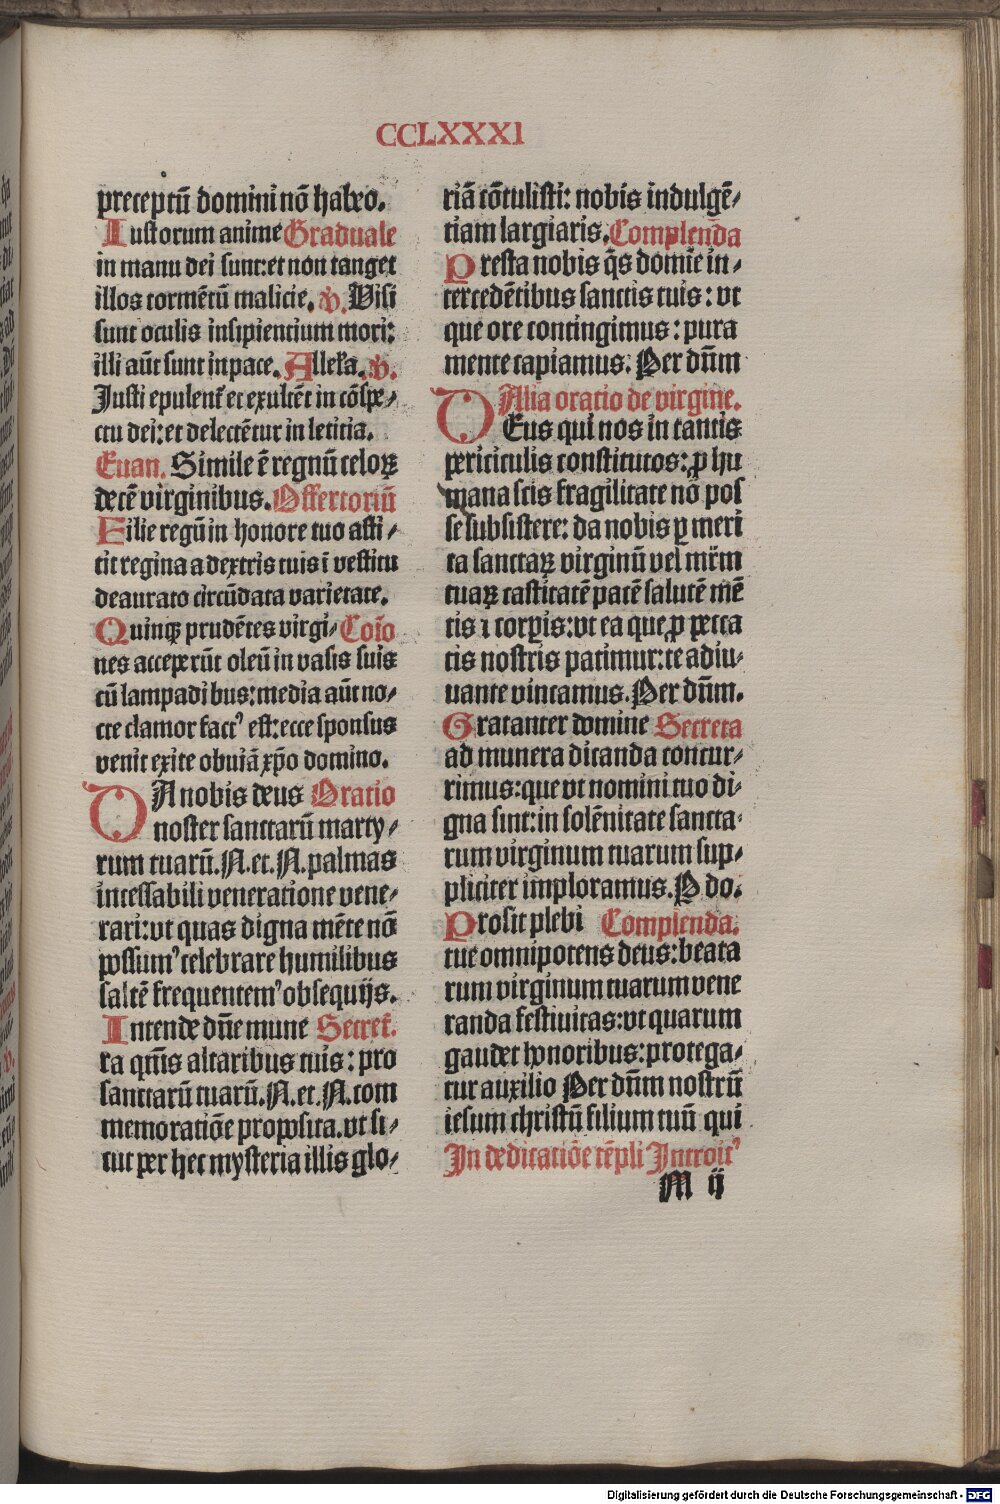 CCLXXXI
preceptū domini nō habeo.
Iustorum anime Graduale
in manu dei sunt:et non tanget
illos tormētū malicie. ꝟ. Visi
sunt oculis insipientium mori:
illi aūt sunt in pace. Alleła. ꝟ.
Justi epulent᷑ et exultēt in cōspe⸗
ctu dei:et delectētur in leticia.
Euan. Simile ē regnū celoꝝ
decē virginibus. Offertoriū
Filie regū in honore tuo asti⸗
tit regina a dextris tuis ī vestitu
deaurato circūdata varietate.
Quinqꝫ prudētes virgi⸗ Coīo
nes acceperūt oleū in vasis suis
cū lampadibus:media aūt no⸗
cte clamor factꝰ est:ecce sponsus
venit exite obuiā xp̄o domino.
DA nobis deus Oratio
noster sanctarū marty⸗
rum tuarū.N.et.N.palmas
incessabili veneratione vene⸗
rari:vt quas digna mēte nō
possumꝰ celebrare humilibus
saltē frequentemꝰ obsequijs.
Intende dn̄e mune Secret᷑.
ra qūs altaribus tuis: pro
sanctarū tuarū.N.et.N.com
memoratiōe proposita.vt si⸗
cut per hec mysteria illis glo⸗
riā cōtulisti: nobis indulgē⸗
tiam largiaris. Complenda
Presta nobis q̄s domīe in⸗
tercedētibus sanctis tuis: vt
que ore contingimus: pura
mente capiamus. Per dn̄m
Alia oratio de virgine.
DEus qui nos in tantis
periciculis constitutos: ꝓ hu
mana scis fragilitate nō pos
se subsistere: da nobis ꝑ meri
ta sanctaꝝ virginū vel mr̄m
tuaꝝ castitatē pacē salutē mē
tis ⁊ corꝑis:vt ea que ꝓ pecca
tis nostris patimur:te adiu⸗
uante vincamus. Per dn̄m.
Gratanter domine Secreta
ad munera dicanda concur⸗
rimus:que vt nomini tuo di⸗
gna sint:in solēnitate sancta⸗
rum virginum tuarum sup⸗
pliciter imploramus. P do.
Prosit plebi Complenda.
tue omnipotens deus:beata
rum virginum tuarum vene
randa festiuitas:vt quarum
gaudet honoribus:protega⸗
tur auxilio Per dn̄m nostrū
iesum christū filium tuū qui
In dedicatiōe tēpli Introitꝰ
M ij
Digitalisierung gefördert durch die Deutsche Forschungsgemeinschaft - DFG